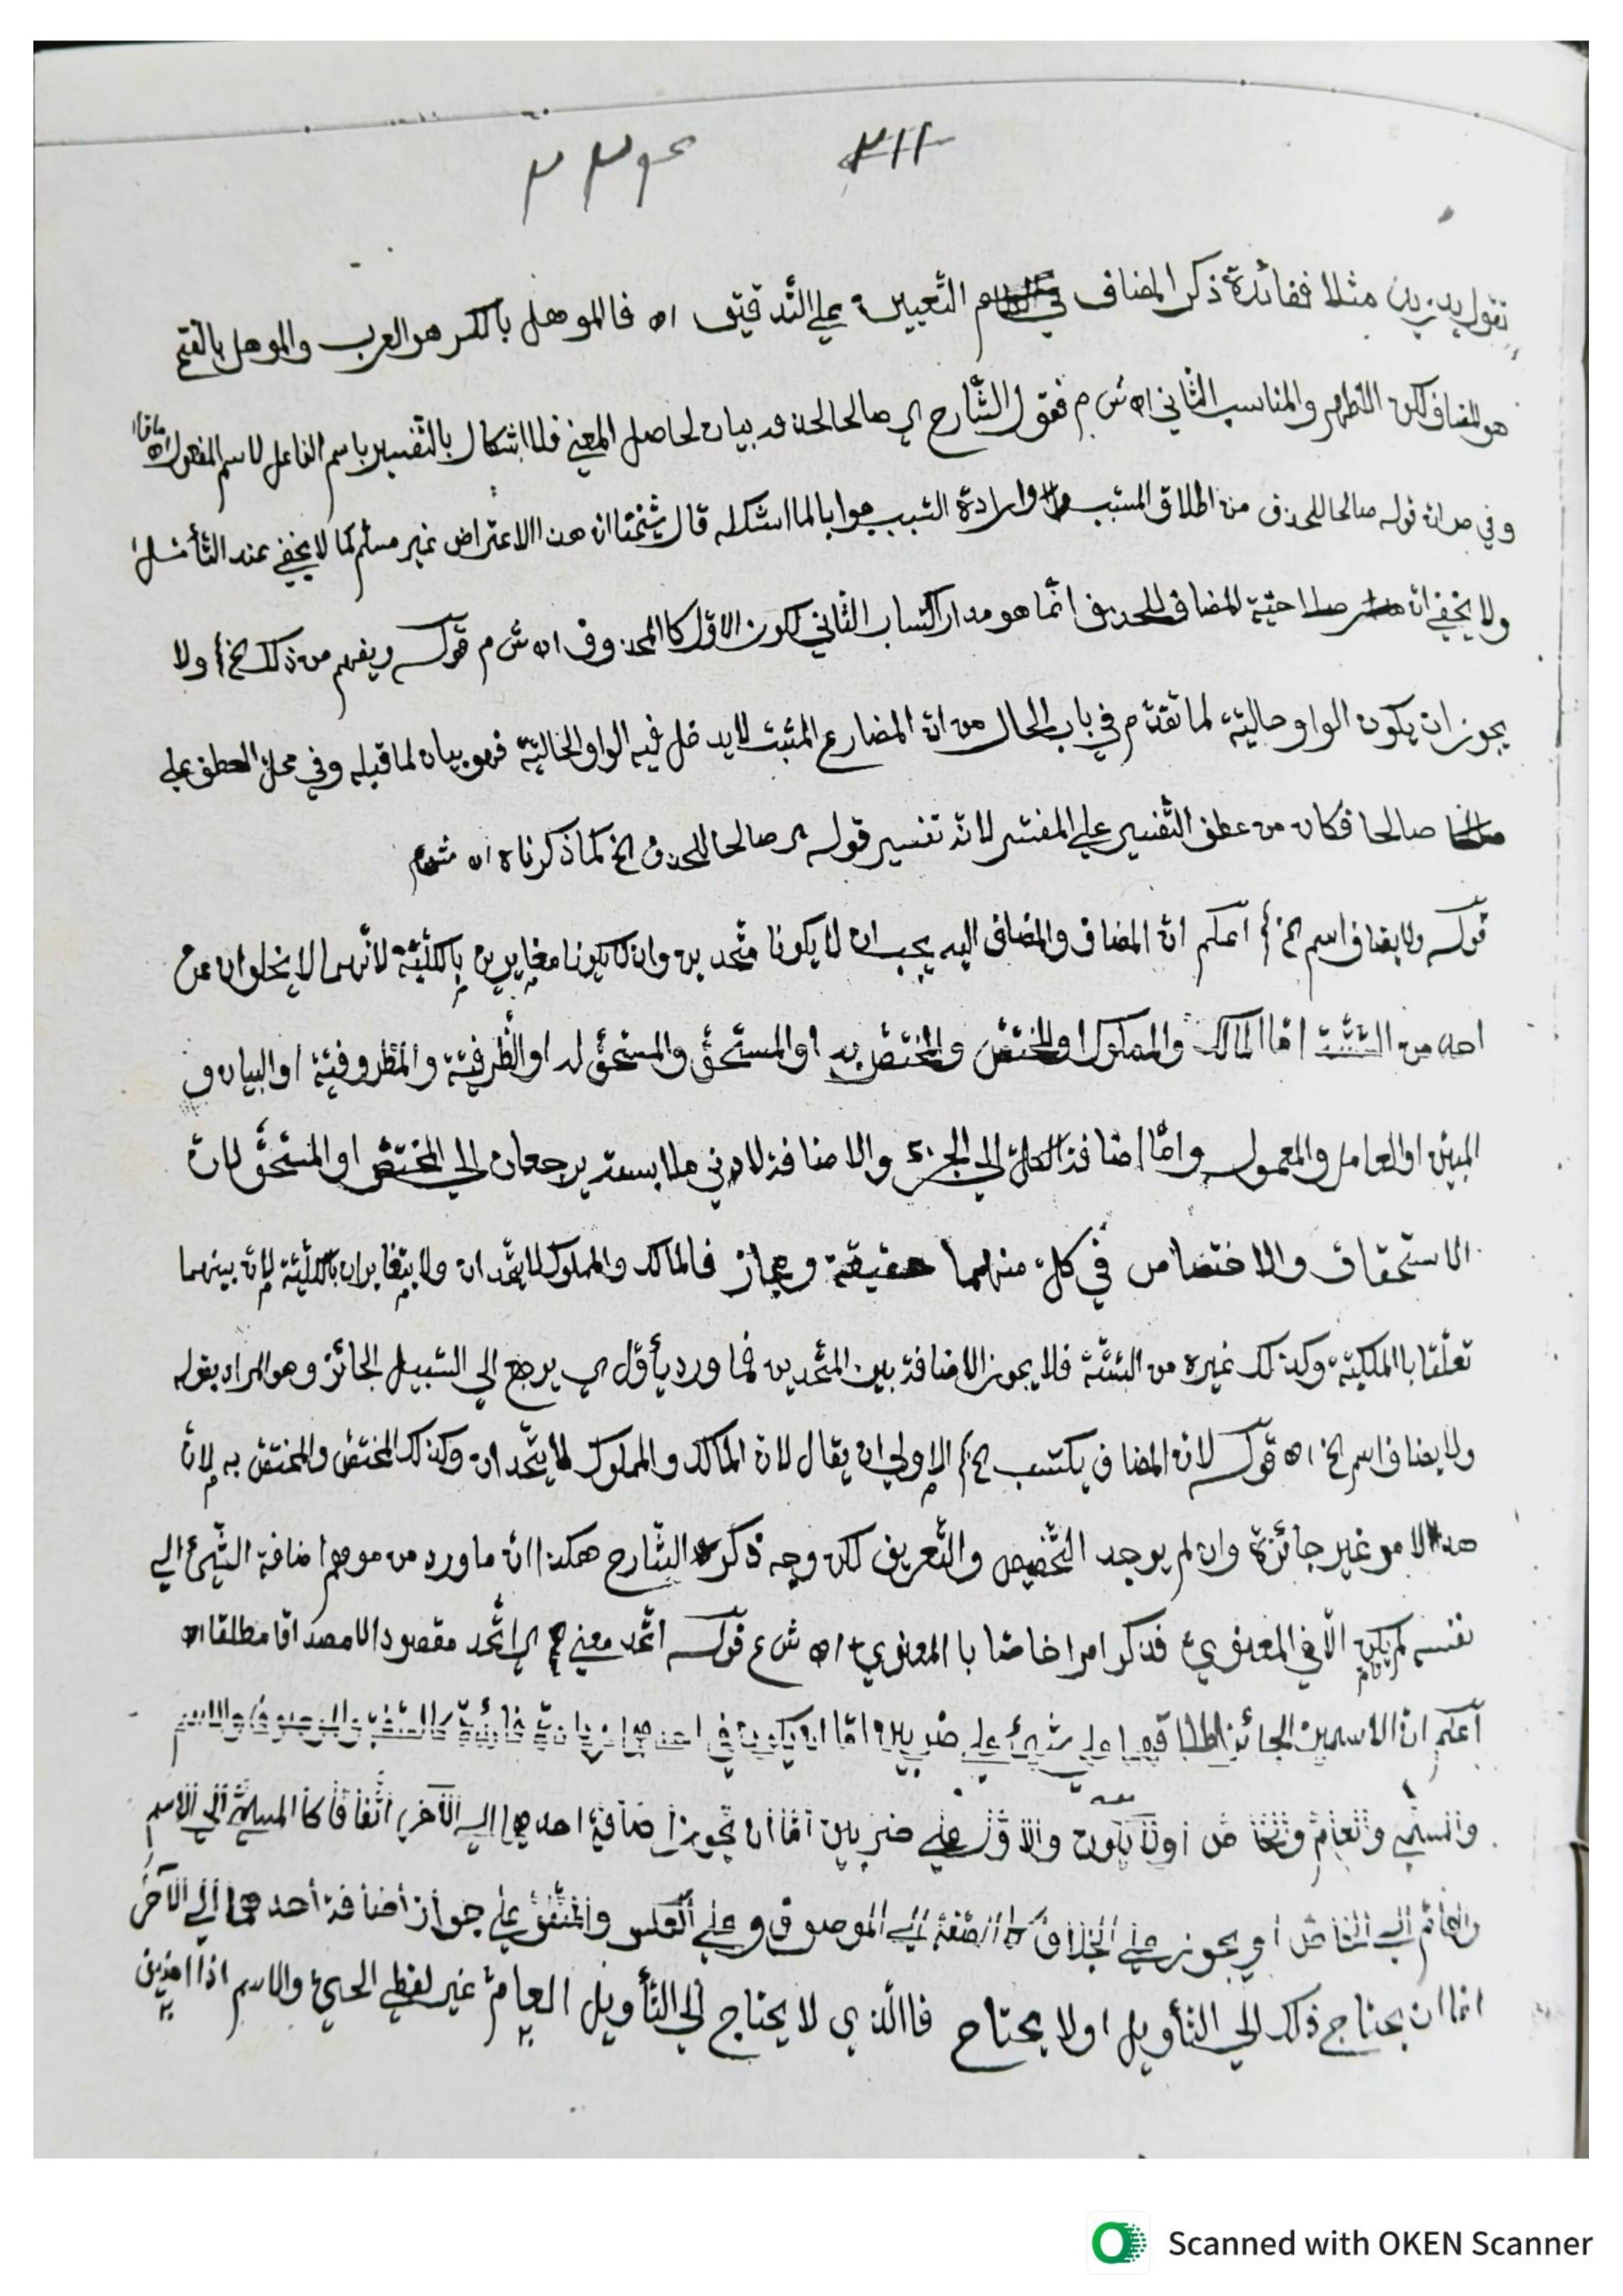 ٣١١ نحو ٣٣
تقول يد زيد مثلا ففائدة ذكر المضاف التعيين على التدقيق اه فالموهل بالكسر هو العرب والموهل بالفتح
هو المضاف لكن الأظهر والمناسب الثاني اه ش م فقول الشارح اي صالحا لحذفه بيان لحاصل المعنى فلا اشكال بالتفسير باسم الفاعل لاسم المفعول
وفي قوله صالحا للحذف من اطلاق المسبب وارادة السبب جوابا لما استشكله قال شيخنا ان هذا الاعتراض غير مسلم كما لا يخفى عند التأمل
ولا يخفى ان صلاحيّة المضاف للحذف انّما هو مدار اكتساب الثّاني لكون الاوّل كالمحذوف اه ش م قوله ويفهم من ذلك الخ ولا
يجوز ان يكون الواو حاليّة لما تقدّم في باب الحال من انّ المضارع المثبت لا يدخل فيه الواو الحاليّة فهو بيان لما قبله وفي محلّ العطف على
صالحا فكان من عطف التّفسير على المفسّر لانّه تفسير قوله اي صالحا للحذف الخ كما ذكرناه اه ش م
قوله ولا يضاف اسم الخ اعلم انّ المضاف والمضاف اليه يجب ان لا يكونا متّحدين وان لا يكونا مغايرين بالكلّيّة لأنّهما لا يخلوان عن
احد من السّتّة امّا المالك والمملوك او المختصّ والمختصّ به او المستحقّ والمستحقّ له او الظّرفيّة والمظروفيّة او البيان و
المبيّن او العامل والمعمول وامّا اضافة الكلّ الى الجزء والاضافة لادنى ملابسة يرجعان الى المختصّ او المستحقّ لانّ
الاستحقاق والاختصاص في كلّ منهما حقيقة ومجاز فالمالك والمملوك لا يتّحدان ولا يتغايران بالكلّيّة لانّ بينهما
تعلّقا بالملكيّة وكذلك غيره من السّتّة فلا يجوز الاضافة بين المتّحدين فما ورد يأوّل اي يرجع الى السّبيل الجائز وهو المراد بقوله
ولا يضاف اسم الخ اه قوله لانّ المضاف يكتسب الخ الاولى ان يقال لانّ المالك والمملوك لا يتّحدان وكذلك المختصّ والمختصّ به لانّ
هذا الامر غير جائزة وان لم يوجد التّخصيص والتّعريف لكن وجه ذكره الشّارح هكذا انّ ما ورد من موهم اضافة الشّيئ الى
نفسه لم يكن الّا في المعنويّ فذكر امرا خاصّا بالمعنويّ اه ش ع قوله اتّحد معنى اي اتّحد مقصودا لا مصداقا مطلقا اه
اعلم انّ الاسمين الجائز اطلاقهما على شيئ على ضربين امّا ان يكون في احدهما زيادة فائدة كالصّفة والموصوف والاسم
والمسمّى والعامّ والخاصّ اولا يكون والاوّل على ضربين امّا ان يجوز اضافة احدهما الى الآخر اتّفاقا كالمسمّى الى الاسم
والعامّ الى الخاصّ او يجوز على الخلاف كالصّفة الى الموصوف وعلى العكس والمتّفق على جواز اضافة احدهما الى الآخر
امّا ان يحتاج ذلك الى التّأويل اولا يحتاج فالّذي لا يحتاج الى التّأويل العامّ غير لفظي الحيّ والاسم اذا اضيف
Scanned with OKEN Scanner